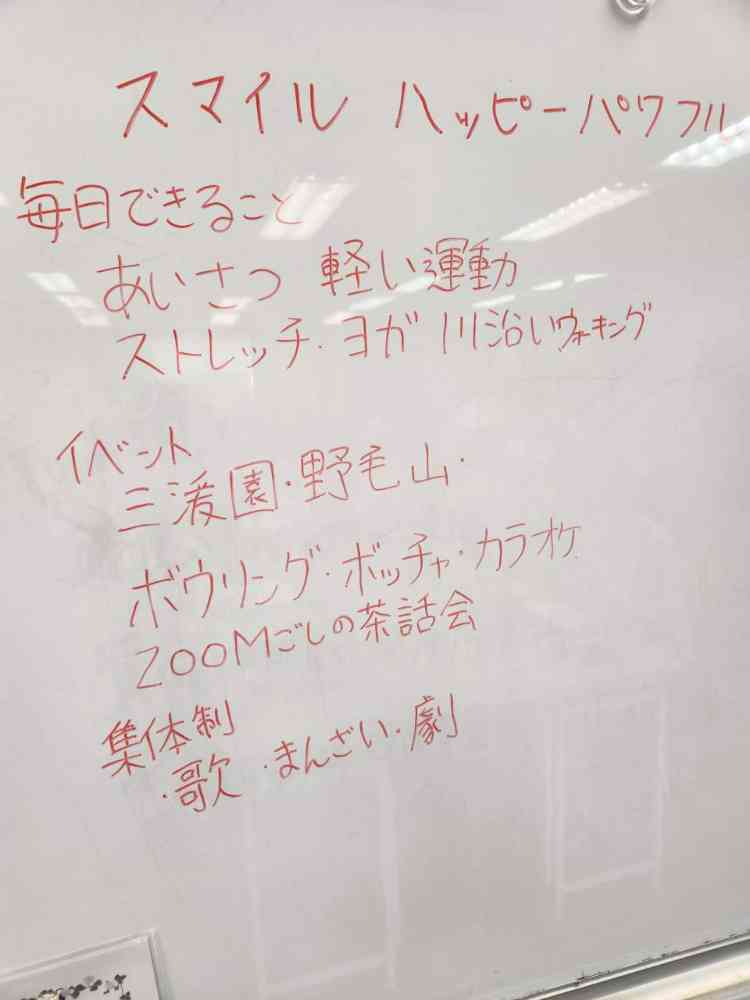 スマイル ハッピーパワフル
毎日できること
あいさつ 軽い運動
ストレッチ・ヨガ 川沿いウォーキング
イベント
三溪園・野毛山・
ボウリング・ボッチャ・カラオケ
ZOOMごしの茶話会
集体制
・歌・まんざい・劇